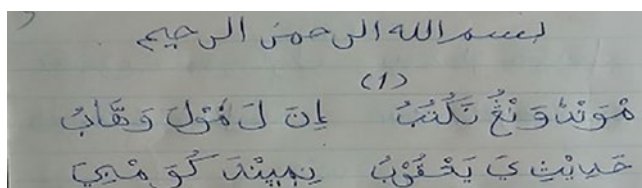 بسم الله الرحمن الرحيم
(١)
مْوَنْدَانِ وَنْغُ نَكُتُبُ إِنَ لَ مْوْلَ وَهَّابُ
حَدِيْثِ يَ يَعْقُوْبُ نِمِپِنْدَ كُوَ مْبِيَ